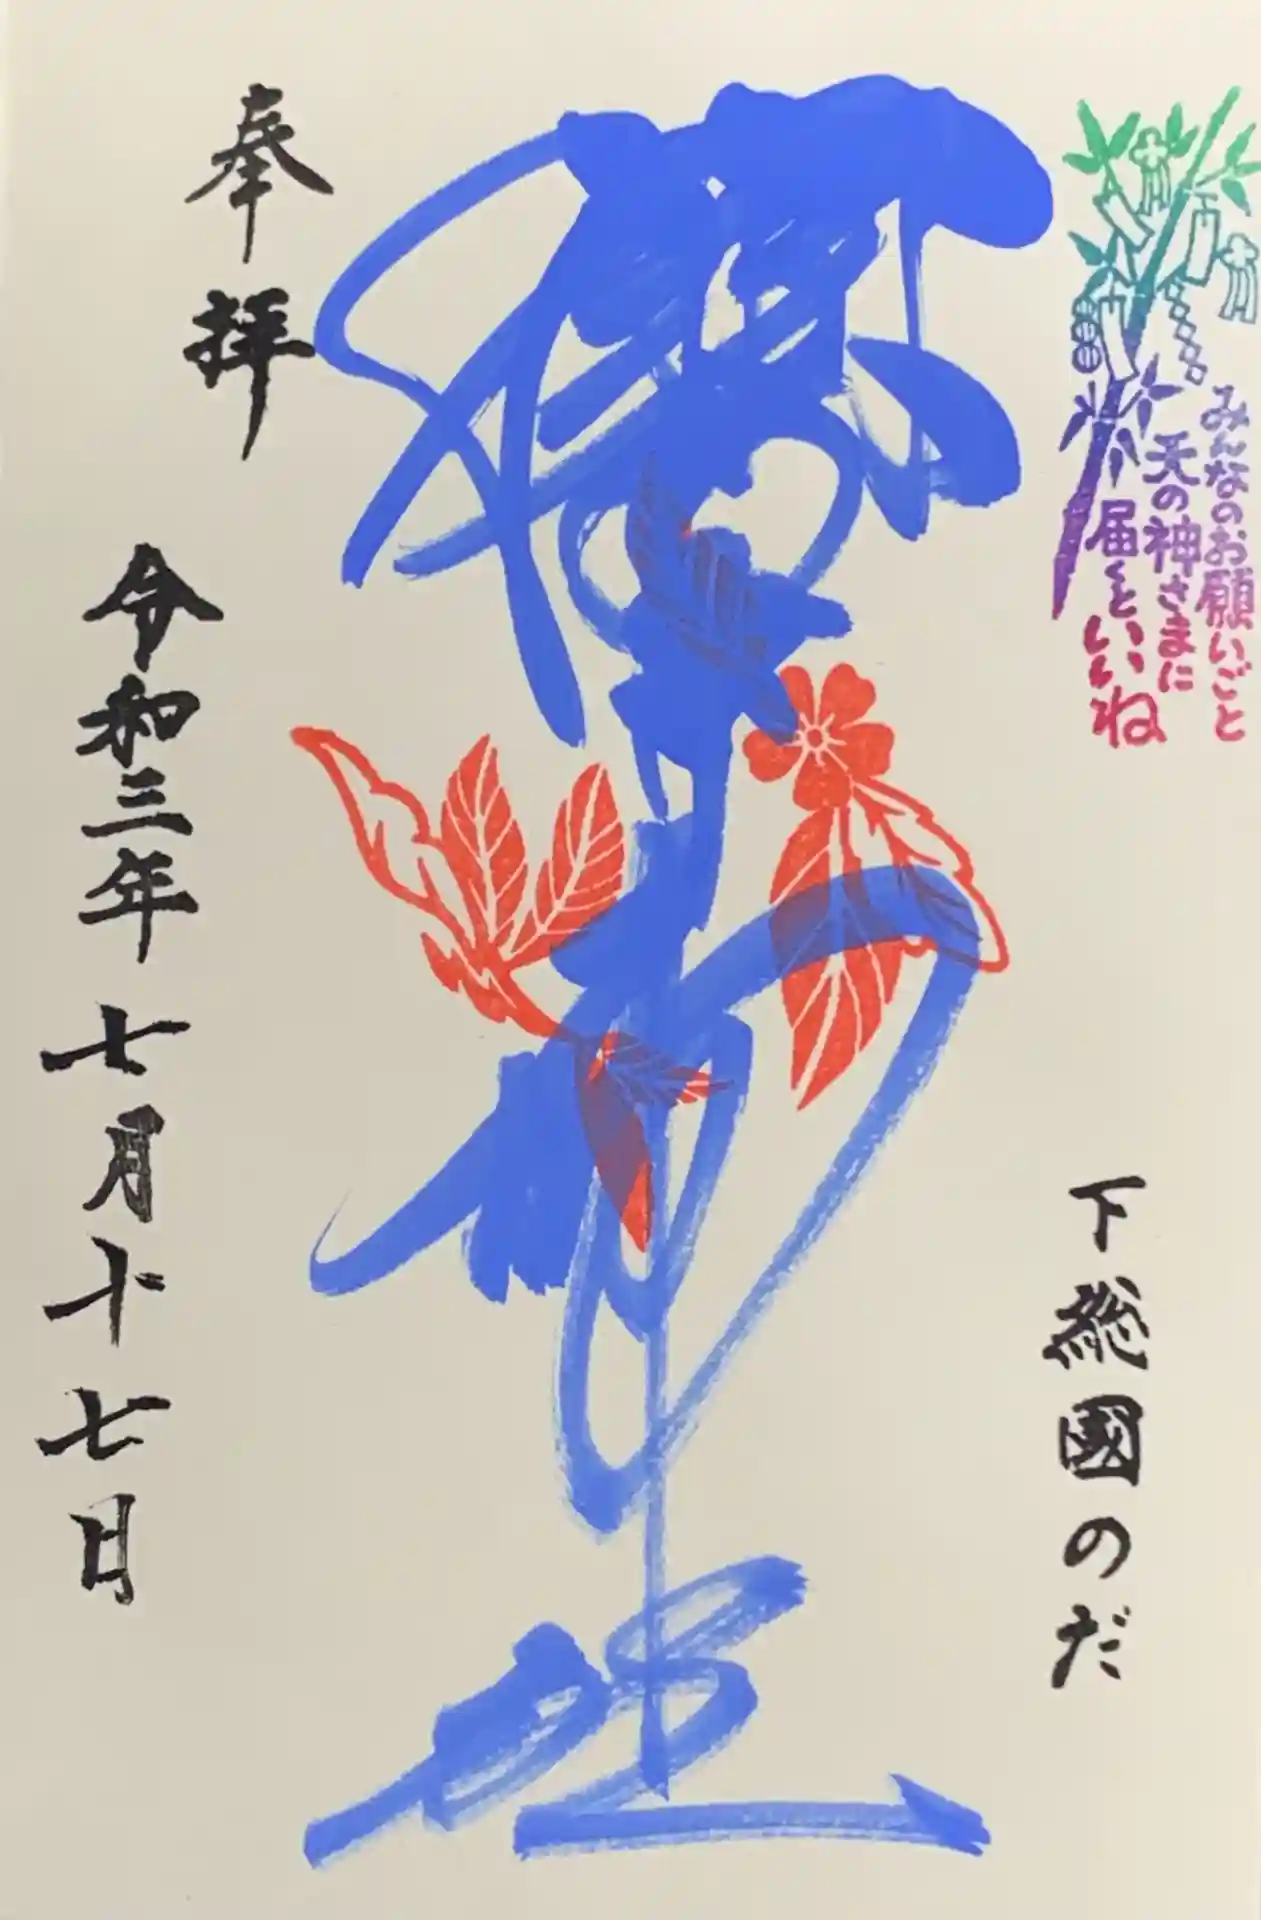 みんなのお願いごと
天の神さまに
届くといいね
下総國のだ
奉拝
令和三年七月十七日